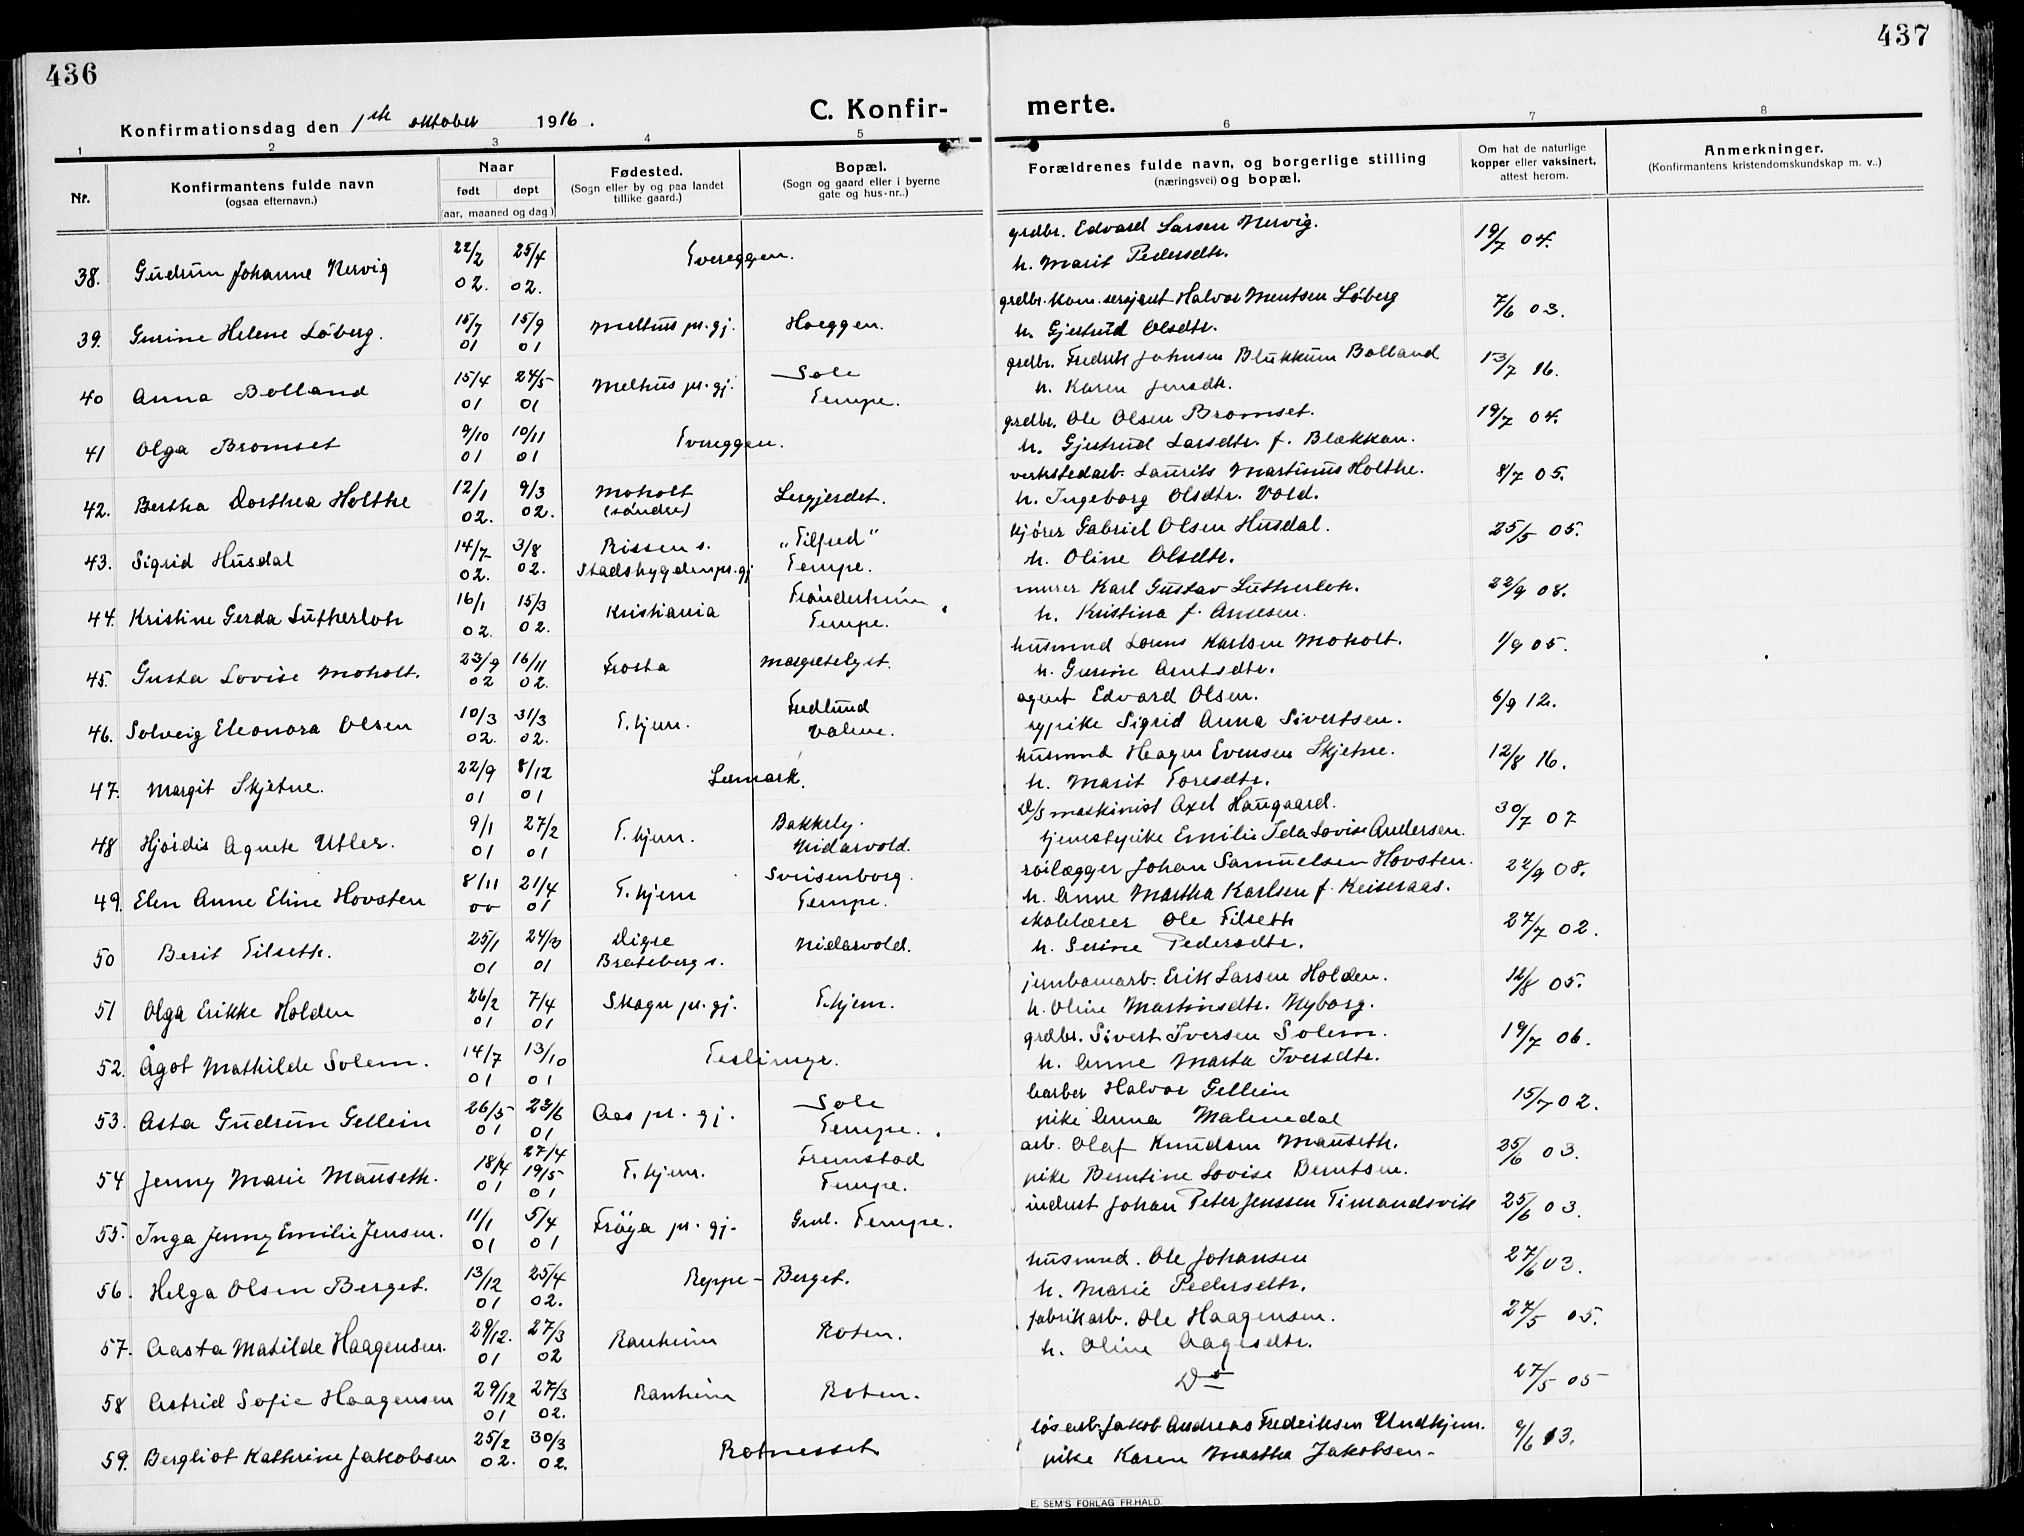 436
437
Konfirmationsdag den 1ste oktober 1916.
C. Konfir-
merte.
1 2 3 4 5 6 7 8
Nr.
Konfirmantens fulde navn
(ogsaa efternavn.)
Naar
født døpt
(aar, maaned og dag)
Fødested.
(Sogn eller by og paa landet
tillike gaard.)
Bopæl.
(Sogn og gaard eller i byerne
gate og hus-nr..)
Forældrenes fulde navn, og borgerlige stilling
(næringsvei) og bopæl.
Om hat de naturlige
kopper eller vaksinert,
attest herom.
Anmerkninger.
(Konfirmantens kristendomskundskap m. v..)
grdbr. Edvard Larsen Nervig.
38. Gudrun Johanne Nervig 22/2 25/4 Tvereggen. 19/7 04.
02. 02. h. Marit Pedersdtr.
grdbr. kom. sersjant Halvor Mentsen Løberg
39. Gurine Helene Løberg. 15/7 15/9 Melhus pr.gj. Hoeggen. 7/6 03.
01 01 h. Gjertrud Olsdtr.
grdbr. Fredrik Johnsen Blukkum Bolland
40 Anna Bolland 15/4 24/5 Melhus pr.gj. Sole 13/7 16.
01 01 Tempe. h. Karen Jensdtr.
grdbr. Ole Olsen Bromset.
41 Olga Bromset 9/10 10/11 Tvereggen. 19/7 04.
01 01 h. Gjertrud Larsdtr. f. Blekkan.
verkstedarb. Laurits Martinus Holthe.
42. Bertha Dorthea Holthe 12/1 9/3 Moholt Lergjerdet. 8/7 05.
02. 02. (søndre) h. Ingeborg Olsdtr. Vold.
kjører Gabriel Olsen Husdal.
43. Sigrid Husdal 14/7 3/8 Rissen s. „Tilfred" 25/5 05.
02. 02. Stadsbygden pr.gj Tempe. h. Oline Olsdtr.
murer Karl Gustav Lutherloh.
44. Kristine Gerda Lutherloh 16/1 15/3 Kristiania Trønderheim 22/9 08.
02. 02. Tempe. h. Kristina f. Arnesen.
husmnd Lorens Karlsen Moholt.
45. Gusta Lovise Moholt. 23/9 16/11 Frosta Margretelyst. 1/9 05.
02 02. h. Gurine Arntsdtr.
agent Edvard Olsen.
46. Solveig Eleonora Olsen 10/3 31/3 T.hjem. Fredlund 6/9 12.
02. 02. Valene. sypike Sigrid Anna Sivertsen.
husmnd Haagen Evensen Skjetne.
47. Margit Skjetne. 22/9 8/12 Lemark. 12/8 16.
01 01 h. Marit Toresdtr.
D/S maskinist Axel Haugaard.
48 Hjørdis Agnete Utler. 9/1 27/2 T.hjem. Bakkely. 30/7 07
01 01 Nidarvold. tjenestepike Emilie Ida Lovise Andersen.
rørlægger Johan Samuelsen Hovsten.
49. Elen Anne Eline Hovsten 8/11 21/4 T.hjem Svinsenborg. 22/9 08.
00 01 Tempe. h. Anne Martha Karlsen f. Keiseraas.
skolelærer Ole Tilseth
50 Berit Tilseth. 25/1 24/3 Digre Nidarvold. 27/7 02.
01 01 Bratsberg s. h. Serine Pedersdtr.
jernbanearb. Erik Larsen Holden.
51 Olga Erikke Holden 26/2 7/4 Skogn pr.gj. T.hjem. 12/8 05.
01 01 h. Oline Martinsdtr. Nyborg.
grdbr. Sivert Iversen Solem.
52. Ågot Mathilde Solem. 14/7 13/10 Teslimyr. 19/7 06.
01 01 h. Anne Marta Iversdtr.
barber Halvor Gellein
53. Asta Gudrun Gellein 26/5 23/6 Aas pr.gj. Sole 15/7 02.
01 01 Tempe. pike Anna Malmedal
arb. Olaf Knudsen Mauseth.
54 Jenny Marie Mauseth. 18/4 27/4 19/5 T.hjem. Fremstad 25/6 03.
01 01 Tempe. pike Berntine Lovise Berntsen.
55. Inga Jenny Emilie Jensen. 11/1 5/4 Frøya pr.gj. Grnl. Tempe. indust Johan Peter Jenssen Timandsvik 25/6 03.
01 01
husmnd. Ole Johansen
56. Helga Olsen Berget. 13/12 25/4 Reppe - Berget. 27/6 03.
01 02. h. Marie Pedersdtr.
fabrikarb. Ole Haagensen.
57. Aasta Matilde Haagensen. 29/12. 27/3 Ranheim Roten. 27/5 05.
01 02 h. Oline Aagesdtr.
58 Astrid Sofie Haagensen 29/12 27/3 Ranheim Roten. Do 27/5 05
01 02.
løsarb. Jakob Andreas Fredriksen Undhjem.
59. Bergliot Kathrine Jakobsen 25/2 30/3 Rotnesset 9/6 13.
02. 02. pike Karen Martha Jakobsen-
E. SEM'S FORLAG FR.HALD.